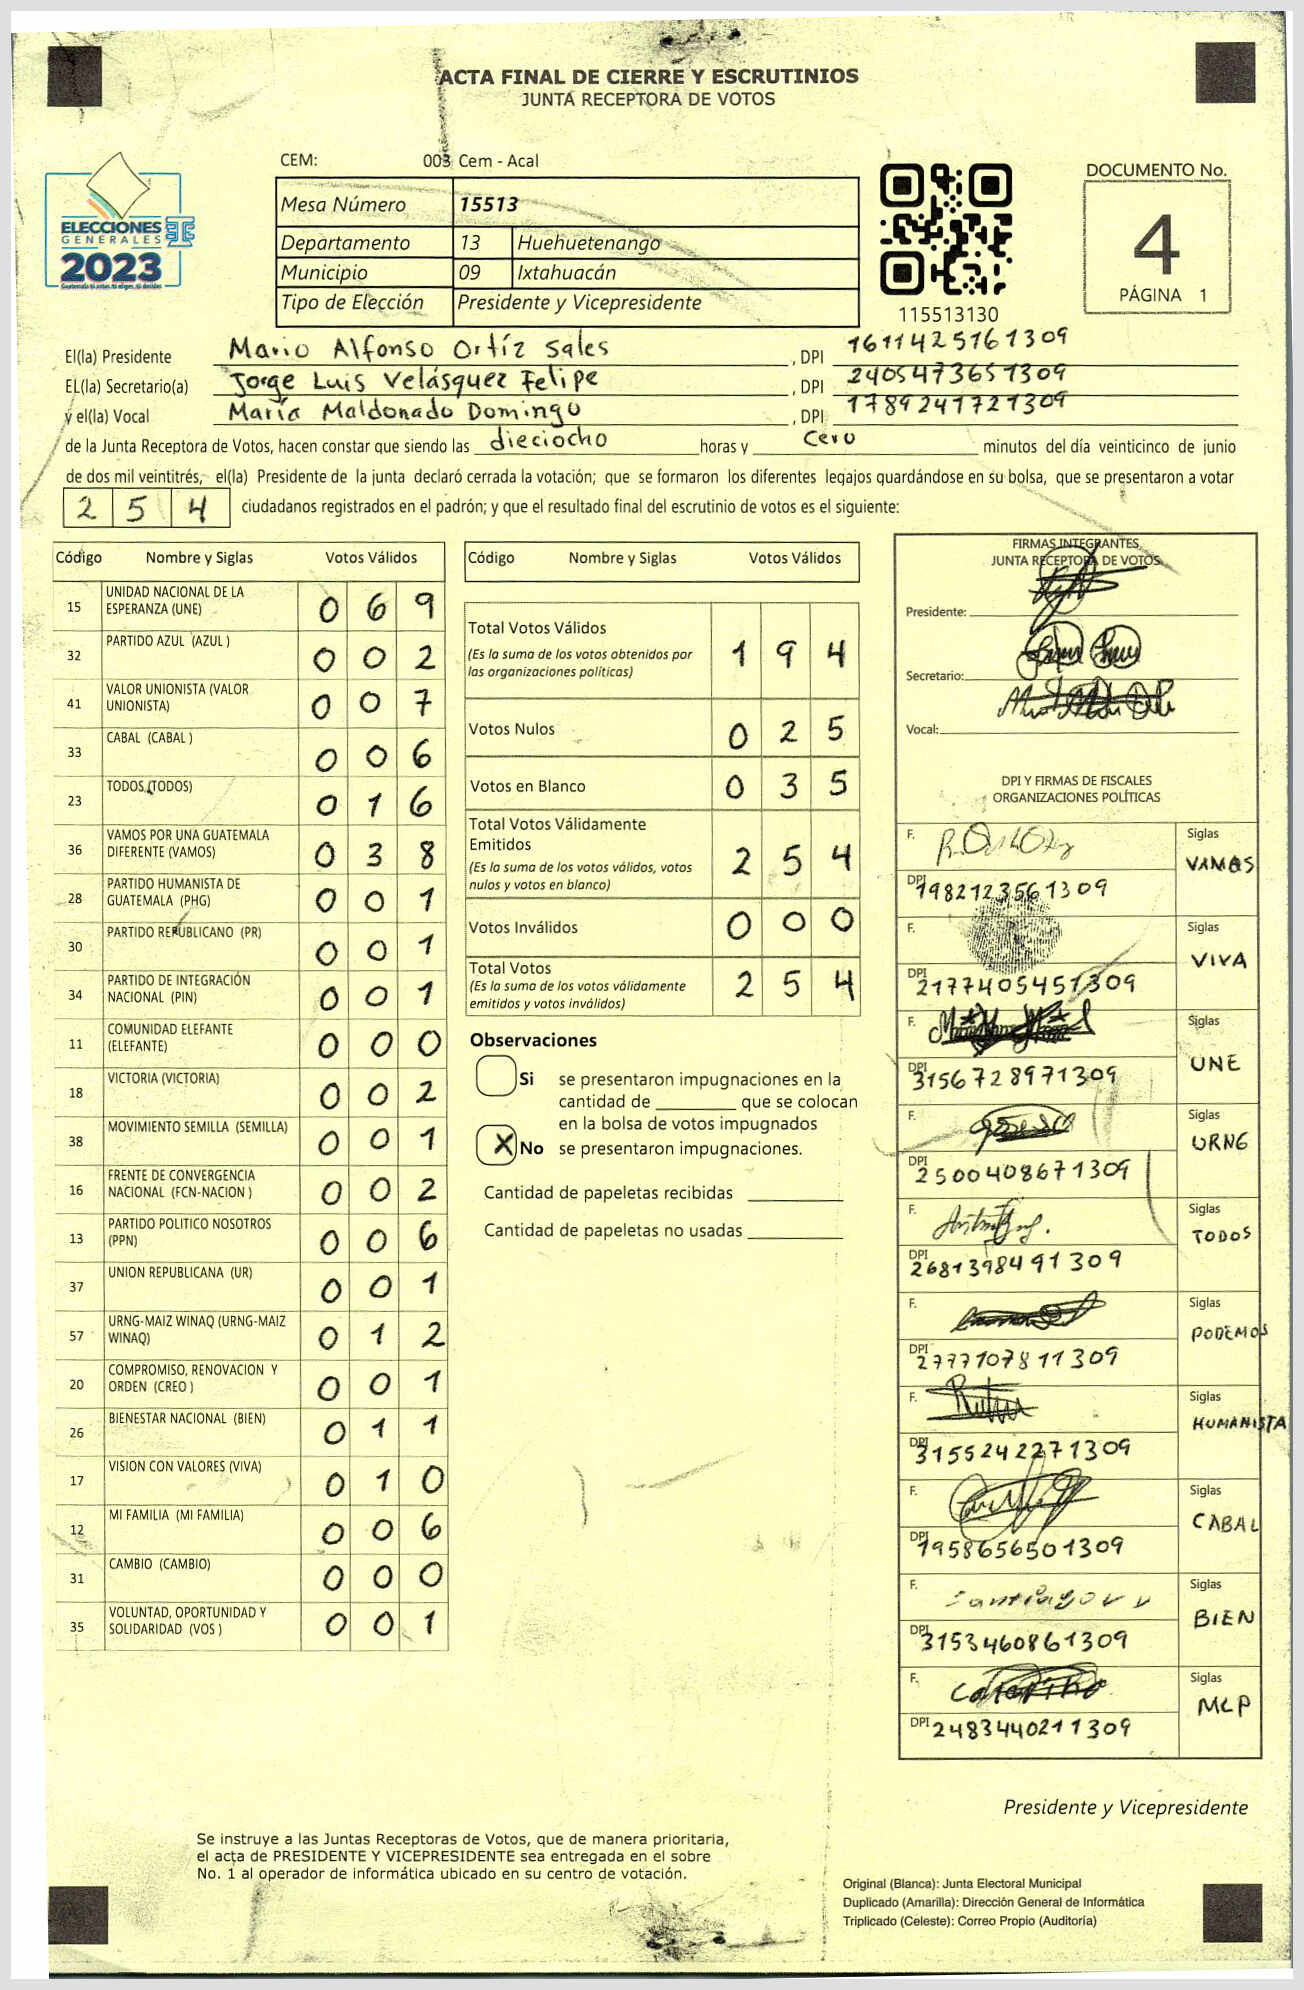 ACTA FINAL DE CIERRE Y ESCRUTINIOS
JUNTA RECEPTORA DE VOTOS
CEM: 003 Cem - Acal
DOCUMENTO No.
4
PÁGINA 1
ELECCIONES
GENERALES
2023
Mesa Número 15513
Departamento 13 Huehuetenango
Municipio 09 Ixtahuacán
Tipo de Elección Presidente y Vicepresidente
115513130
El(la) Presidente Mario Alfonso Ortíz Sales , DPI 1611425161309
EL(la) Secretario(a) Jorge Luis Velásquez Felipe , DPI 2405473651309
y el(la) Vocal María Maldonado Domingo , DPI 1789241721309
de la Junta Receptora de Votos, hacen constar que siendo las dieciocho horas y cero minutos del día veinticinco de junio
de dos mil veintitrés, el(la) Presidente de la junta declaró cerrada la votación; que se formaron los diferentes legajos guardándose en su bolsa, que se presentaron a votar
2 5 4 ciudadanos registrados en el padrón; y que el resultado final del escrutinio de votos es el siguiente:
Código Nombre y Siglas Votos Válidos
15 UNIDAD NACIONAL DE LA
ESPERANZA (UNE) 0 6 9
32 PARTIDO AZUL (AZUL ) 0 0 2
41 VALOR UNIONISTA (VALOR
UNIONISTA) 0 0 7
33 CABAL (CABAL ) 0 0 6
23 TODOS (TODOS) 0 1 6
36 VAMOS POR UNA GUATEMALA
DIFERENTE (VAMOS) 0 3 8
28 PARTIDO HUMANISTA DE
GUATEMALA (PHG) 0 0 1
30 PARTIDO REPUBLICANO (PR) 0 0 1
34 PARTIDO DE INTEGRACIÓN
NACIONAL (PIN) 0 0 1
11 COMUNIDAD ELEFANTE
(ELEFANTE) 0 0 0
18 VICTORIA (VICTORIA) 0 0 2
38 MOVIMIENTO SEMILLA (SEMILLA) 0 0 1
16 FRENTE DE CONVERGENCIA
NACIONAL (FCN-NACION ) 0 0 2
13 PARTIDO POLITICO NOSOTROS
(PPN) 0 0 6
37 UNION REPUBLICANA (UR) 0 0 1
57 URNG-MAIZ WINAQ (URNG-MAIZ
WINAQ) 0 1 2
20 COMPROMISO, RENOVACION Y
ORDEN (CREO ) 0 0 1
26 BIENESTAR NACIONAL (BIEN) 0 1 1
17 VISION CON VALORES (VIVA) 0 1 0
12 MI FAMILIA (MI FAMILIA) 0 0 6
31 CAMBIO (CAMBIO) 0 0 0
35 VOLUNTAD, OPORTUNIDAD Y
SOLIDARIDAD (VOS ) 0 0 1
Código Nombre y Siglas Votos Válidos
Total Votos Válidos
(Es la suma de los votos obtenidos por
las organizaciones políticas) 1 9 4
Votos Nulos 0 2 5
Votos en Blanco 0 3 5
Total Votos Válidamente
Emitidos
(Es la suma de los votos válidos, votos
nulos y votos en blanco) 2 5 4
Votos Inválidos 0 0 0
Total Votos
(Es la suma de los votos válidamente
emitidos y votos inválidos) 2 5 4
Observaciones
Si se presentaron impugnaciones en la
cantidad de ________ que se colocan
en la bolsa de votos impugnados
X No se presentaron impugnaciones.
Cantidad de papeletas recibidas
Cantidad de papeletas no usadas
FIRMAS INTEGRANTES
JUNTA RECEPTORA DE VOTOS
Presidente:
Secretario:
Vocal:
DPI Y FIRMAS DE FISCALES
ORGANIZACIONES POLÍTICAS
F. Siglas VAMOS
DPI 1982123561309
F. Siglas VIVA
DPI 2177405451309
F. Siglas UNE
DPI 3156728971309
F. Siglas URNG
DPI 2500408671309
F. Siglas TODOS
DPI 2681398491309
F. Siglas PODEMOS
DPI 2777107811309
F. Siglas HUMANISTA
DPI 3155242271309
F. Siglas CABAL
DPI 1958656501309
F. Siglas BIEN
DPI 3153460861309
F. Siglas MLP
DPI 2483440211309
Presidente y Vicepresidente
Se instruye a las Juntas Receptoras de Votos, que de manera prioritaria,
el acta de PRESIDENTE Y VICEPRESIDENTE sea entregada en el sobre
No. 1 al operador de informática ubicado en su centro de votación.
Original (Blanca): Junta Electoral Municipal
Duplicado (Amarilla): Dirección General de Informática
Triplicado (Celeste): Correo Propio (Auditoría)